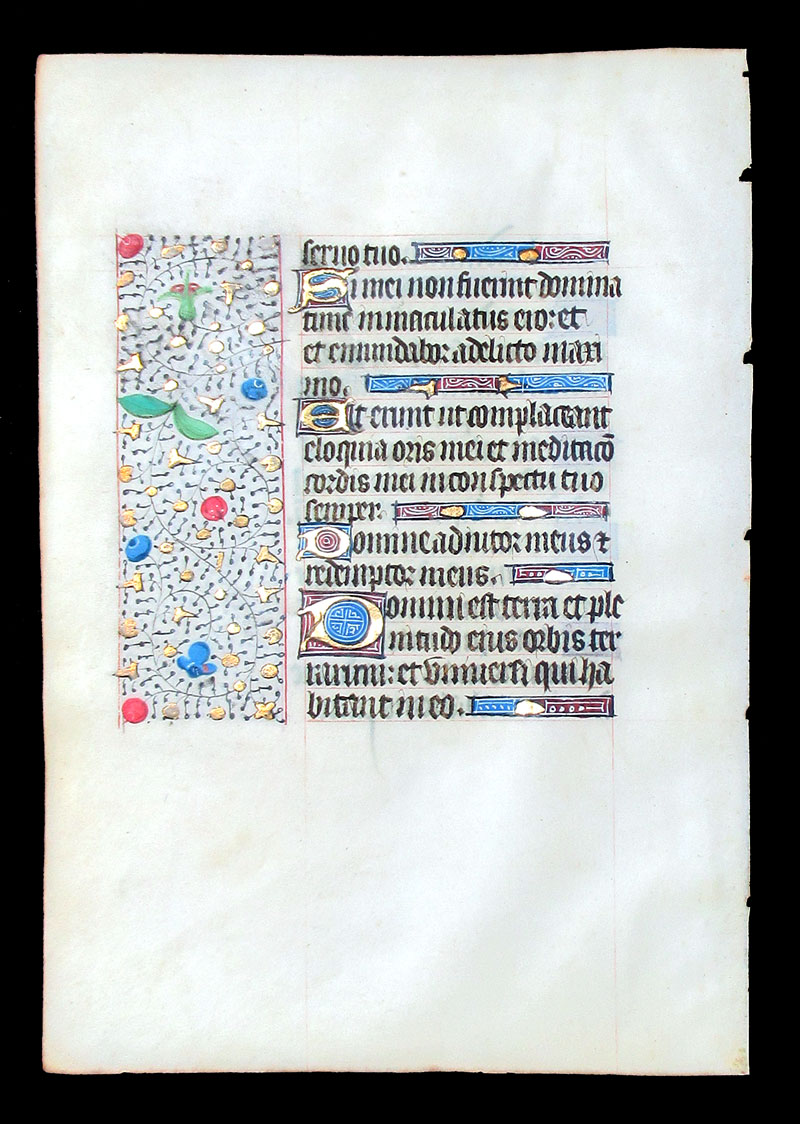 seruo tuo.
Si mei non fuerint domina
tunc inmaculatus ero: et
et emundabor a delicto maxi
mo.
Et erunt ut complaceant
eloquia oris mei et meditacō
cordis mei in conspectu tuo
semper.
Domine adiutor meus &
redemptor meus.
Domini est terra et ple
nitudo eius orbis ter
rarum: et vniuersi qui ha
bitant in eo.